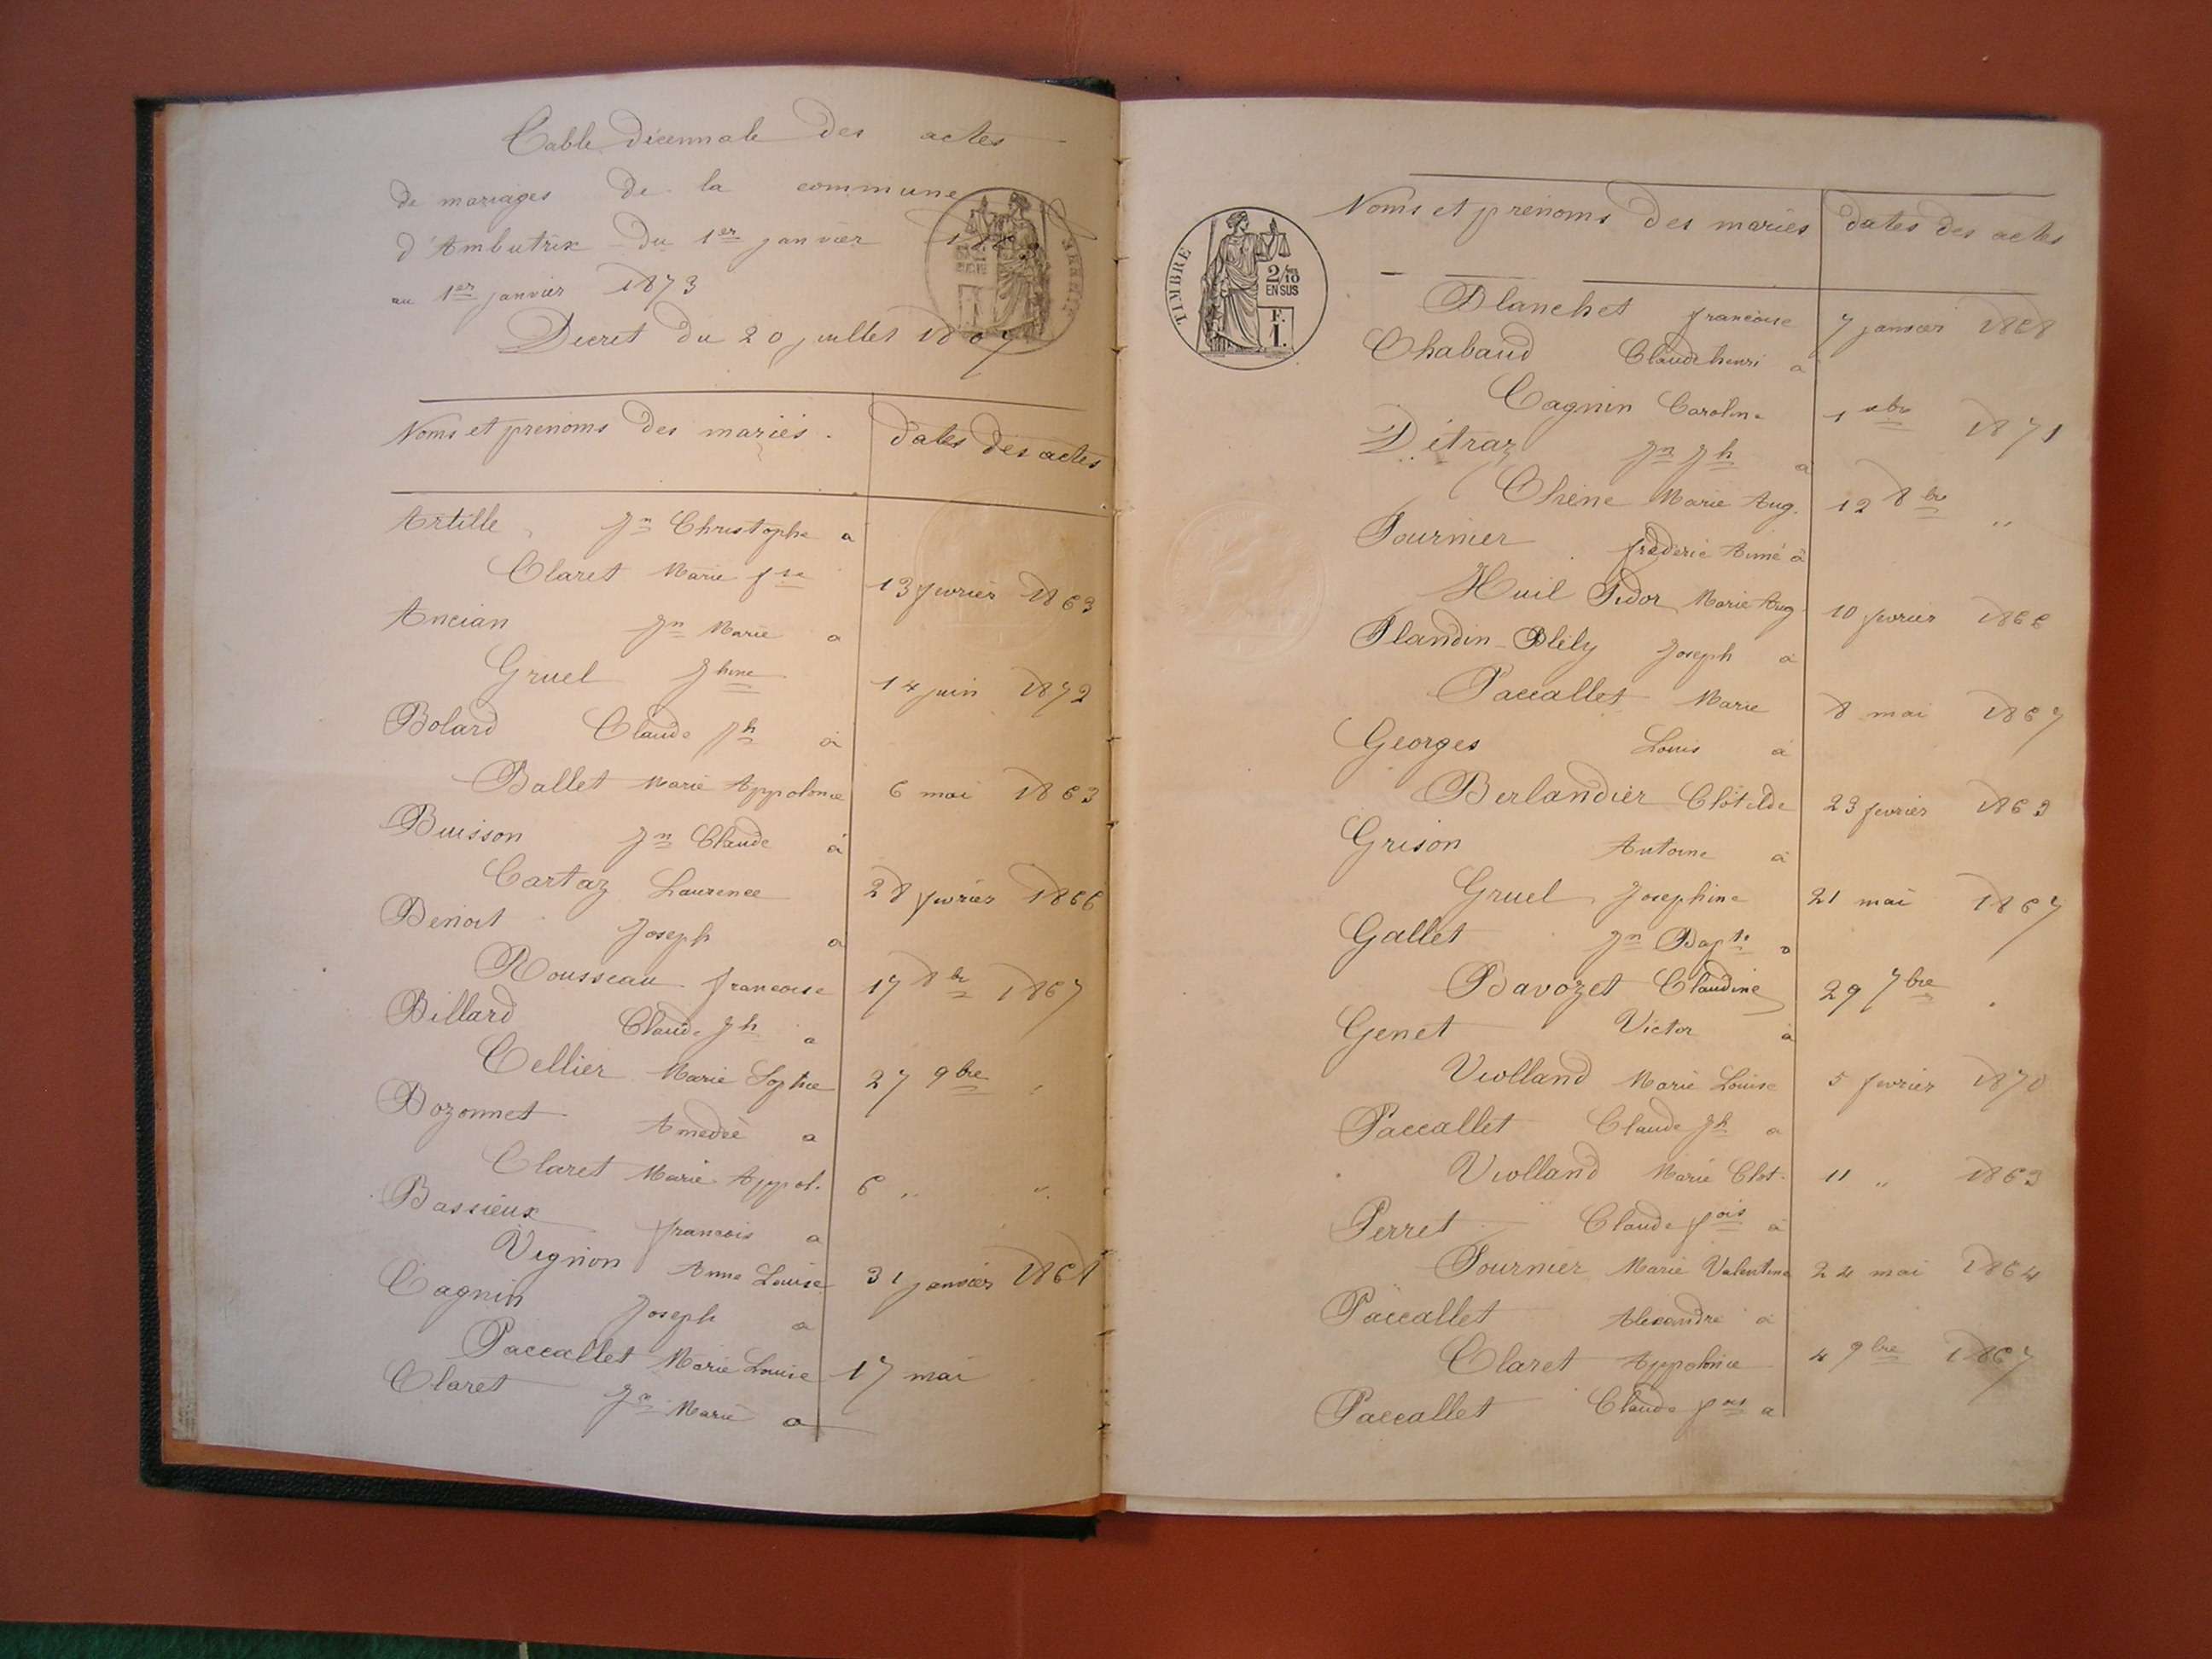 Table décennale des actes
de mariages de la commune
d'Ambutrix du 1er janvier
au 1er janvier 1873
Decret du 20 juillet 1807
Noms et prénoms des mariés. dates des actes
Artille Jn Christophe a
Claret Marie fse 13 fevrier 1863
Ancian Jn Marie a
Gruel Jhine 14 juin 1872
Bolard Claude Jh à
Ballet Marie Appolonie 6 mai 1863
Buisson Jn Claude à
Cartaz Laurence 28 fevrier 1866
Benoit Joseph a
Rousseau francoise 17 8bre 1867
Billard Claude Jh a
Cellier Marie Sophie 27 9bre "
Bozonnet Amedée a
Claret Marie Appol. 6 " "
Bassieux francois a
Vignon Anne Louise 31 janvier
Cagnin Joseph a
Paccallet Marie Louise 17 mai
Claret Jn Marie a
TIMBRE
2/10
EN SUS
F.
1.
Noms et prénoms des mariés dates des actes
Blanchet francoise 7 janvier 1868
Chabaud Claude henri a
Cagnin Caroline 1 xbre 1871
Détraz Jn Jh a
Chêne Marie Aug. 12 8bre "
Fournier fréderic Aimé à
Huil Fidor Marie Aug. 10 fevrier 1866
Flandin-Blély Joseph à
Paccallet Marie 8 mai 1867
Georges Louis à
Berlandier Clotilde 23 fevrier 1863
Grison Antoine à
Gruel Josephine 21 mai 1867
Gallet Jn Bapte a
Bavozet Claudine 29 7bre "
Genet Victor à
Violland Marie Louise 5 fevrier 1870
Paccallet Claude Jh a
Violland Marie Clot. 11 " 1863
Perret Claude fois à
Fournier Marie Valentine 24 mai 1864
Paccallet Alexandre à
Claret Appolonie 4 9bre 1867
Paccallet Claude fois a